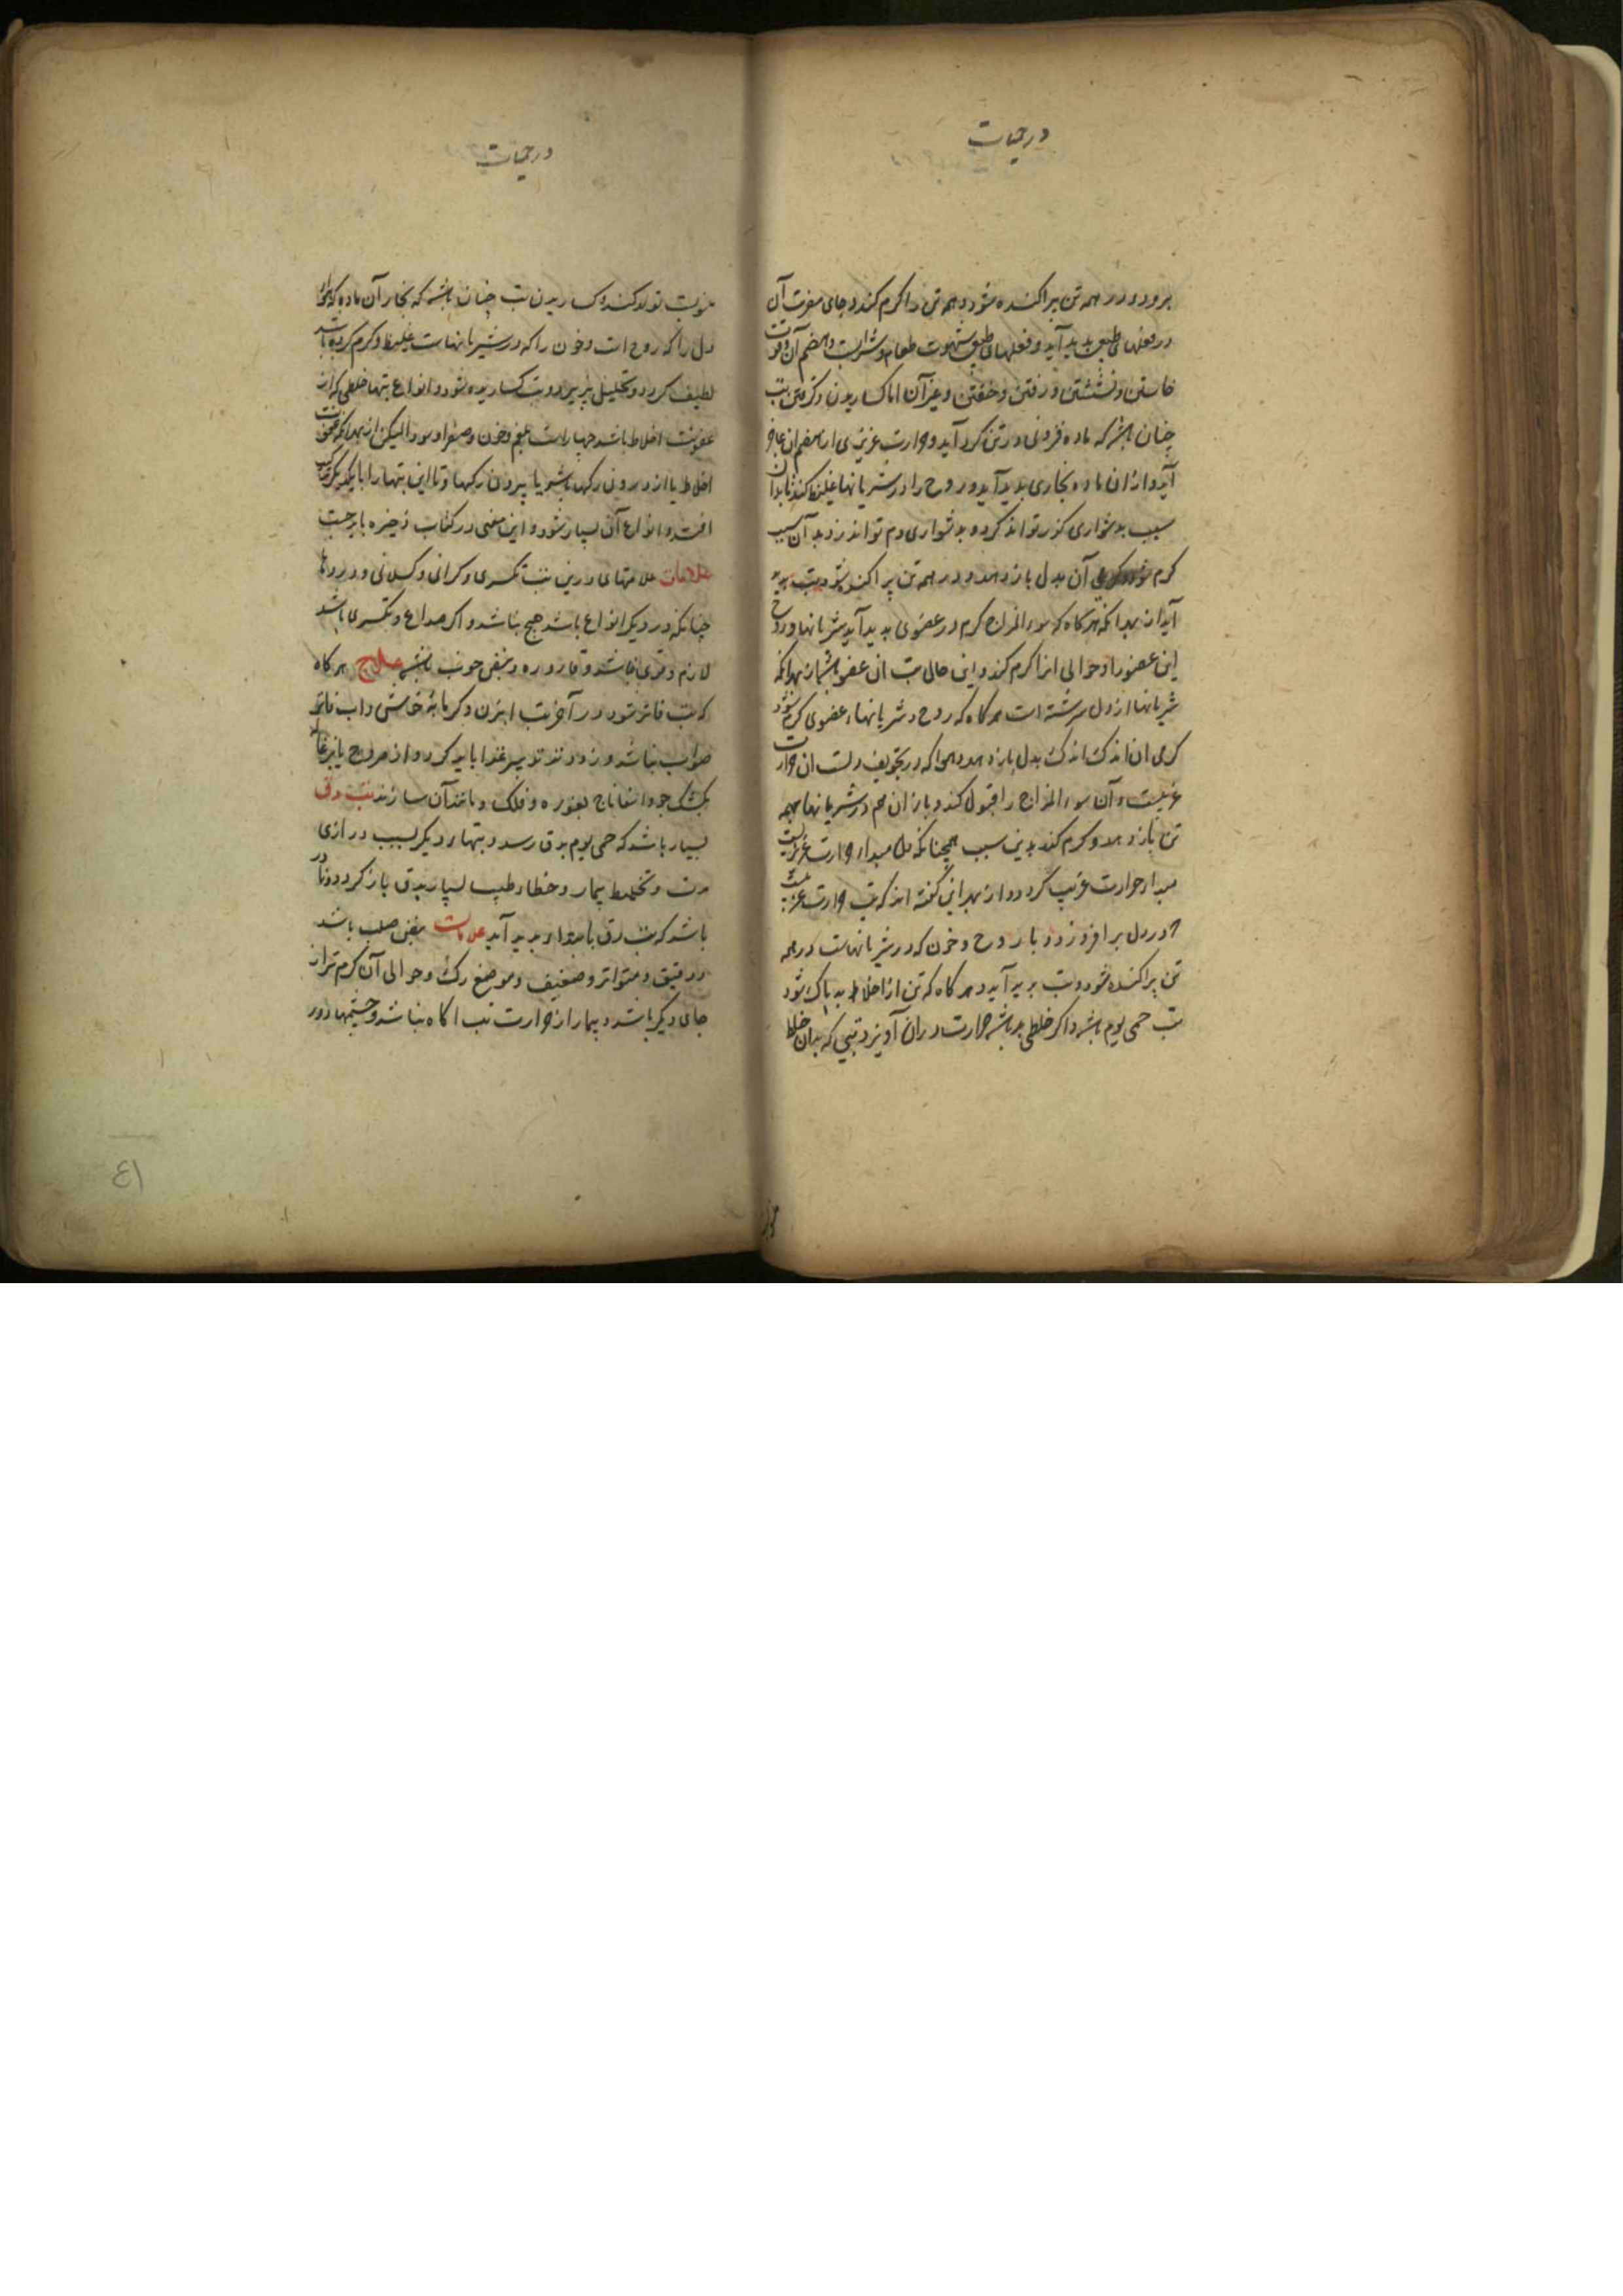 در حمیات
برود و در همه تن پراکنده شود و همه تن را گرم کند و جای مضرت آن
در فعلهای طبیعی پدید آید و فعلهای طبیعی شهوت طعام و شراب و هضم آن و قوت
خاستن و نشستن و رفتن و خفتن و غیر آن اما کساریدن و گرفتن تب
چنان باشد که ماده فزونی در تن گرد آید و حرارت غریزی از هضم آن عاجز
آید و از ان ماده بخاری پدید آید و روح را در شریانها غلیظ کند تا بدان
سبب بدشواری گذر تواند کرد و بدشواری دم تواند زد بدان سبب
گرم شود و گرمی آن بدل باز دهد و در همه تن پراکنده شود و تب پدید
آید از بهر آنکه هر گاه که سوء المزاج گرم در عضوی پدید آید شریانها و روح
این عضو را و حوالی انرا گرم کند و این حالی تب ان عضو باشد از بهر آنکه
شریانها از دل رسته است هر گاه که روح و شریانهاء عضوی گرم شود
گرمی ان اندک اندک بدل باز دهد و هوا که در تجویف دلست ان حرارت
غریبست و آن سوء المزاج را قبول کند و باز ان هم در شریانها بهمه
تن باز دهد و گرم کند بدین سبب همچنانکه دل مبداء حرارت غریزیست
مبداء حرارت غریب گردد و از بهر این گفته اند که تب حرارت غریب است
که در دل بر افروزد و با روح و خون که در شریانهاست در همه
تن پراکنده شود و تب پدید آید و هر گاه که تن از اخلاط بد پاک شود
تب حمی یوم باشد و اگر خلطی بد باشد حرارت در ان آویزد و تبی که بدان خلط
در حمیات
منسوبست تولد کند و کساریدن تب چنان باشد که بخار آن ماده که هوای
دل را که روح است و خون را که در شریانهاست غلیظ و گرم کرده باشد
لطیف گردد و تحلیل پذیرد و تب کساریده شود و انواع تبهاء خلطی که از
عفونت اخلاط باشد چهار است بلغم و خون و صفرا و سودا لیکن از بهر آنکه عفونت
اخلاط یا از درون رگها باشد یا بیرون رگها و تا این تبها را با یکدیگر ترکیب
افتد و انواع آن بسیار شود و این معنی در کتاب ذخیره باید جست
علامات علامتهای درین تب تکسری و گرانی و کسلانی و دردها
چنانکه در دیگر انواع باشد هیچ نباشد و اگر صداع و تکسری باشد
لازم و قوی نباشد و قاروره و نبض خوب باشد علاج هر گاه
که تب فاتر شود در آخر تب ابزن و گرمابهٔ خاستی و آب فاتر
صواب باشد و زودتر تدبیر غذا باید کرد و از فروج یا بزغاله
بکشک جو و اسفاناخ بغوره و فلک و مانند آن سازند تب دق
بسیار باشد که حمی یوم بدق رسد و تبهاء دیگر بسبب درازی
مدت و تخلیط بیمار و خطاء طبیب بسیار بدق باز گردد و نادر
باشد که تب دق بابتدا پدید آید علامات نبض صلب باشد
و دقیق و متواتر و ضعیف و موضع رگ و حوالی آن گرم تر از
جای دیگر باشد و بیمار از حرارت تب اگاه نباشد و چشمها دور
٤١